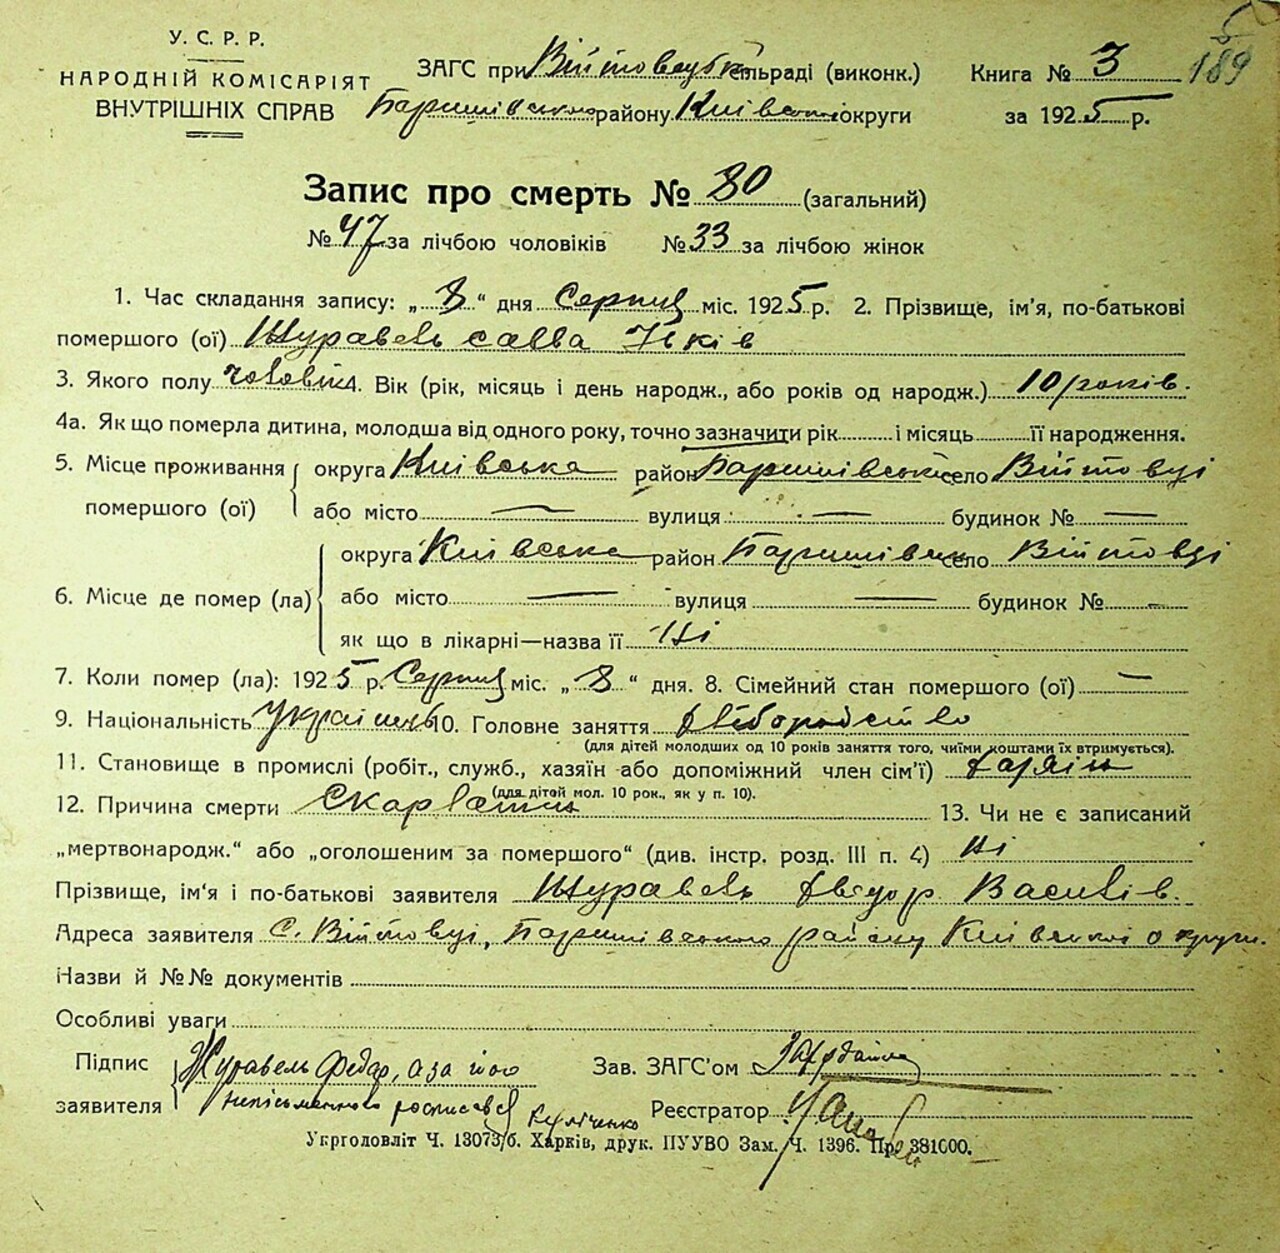 У. С. Р. Р.
НАРОДНІЙ КОМІСАРІЯТ
ВНУТРІШНІХ СПРАВ
ЗАГС при Війтовецькій сільраді (виконк.)
Баришівського району Київської округи
Книга № 3
за 1925 р.
189
Запис про смерть № 80 (загальний)
№ 47 за лічбою чоловіків № 33 за лічбою жінок
1. Час складання запису: „8“ дня Серпня міс. 1925 р. 2. Прізвище, ім'я, по-батькові
помершого (ої) Журавель Савва Яків
3. Якого полу чоловік 4. Вік (рік, місяць і день народж., або років од народж.) 10 років.
4а. Як що померла дитина, молодша від одного року, точно зазначити рік і місяць її народження.
5. Місце проживання помершого (ої) округа Київська район Баришівськ село Війтовці
або місто — вулиця — будинок № —
6. Місце де помер (ла) округа Київська район Баришівськ село Війтовці
або місто — вулиця — будинок № —
як що в лікарні—назва її Ні
7. Коли помер (ла): 1925 р. Серпня міс. „8“ дня. 8. Сімейний стан помершого (ої) —
9. Національність Українець 10. Головне заняття хліборобство
(для дітей молодших од 10 років заняття того, чиїми коштами їх втримується).
11. Становище в промислі (робіт., служб., хазяїн або допоміжний член сім'ї) хазяїн
(для дітей мол. 10 рок., як у п. 10).
12. Причина смерти Скарлатина 13. Чи не є записаний
„мертвонародж.“ або „оголошеним за помершого“ (див. інстр. розд. III п. 4) Ні
Прізвище, ім'я і по-батькові заявителя Журавель Хведор Василів.
Адреса заявителя С. Війтовці, Баришівського району Київської округи.
Назви й №№ документів
Особливі уваги
Підпис заявителя Журавель Федор, а за його
неписьменного росписався Куліченко
Зав. ЗАГС'ом
Реєстратор
Укрголовліт Ч. 13073/б. Харків, друк. ПУУВО Зам. Ч. 1396. Пр. 381000.